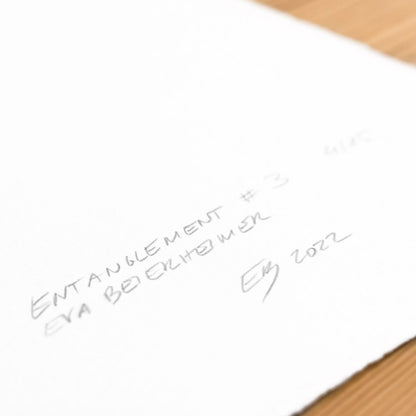 ENTANGLEMENT # 3 4/15
EVA BEIERHEIMER
EB 2022